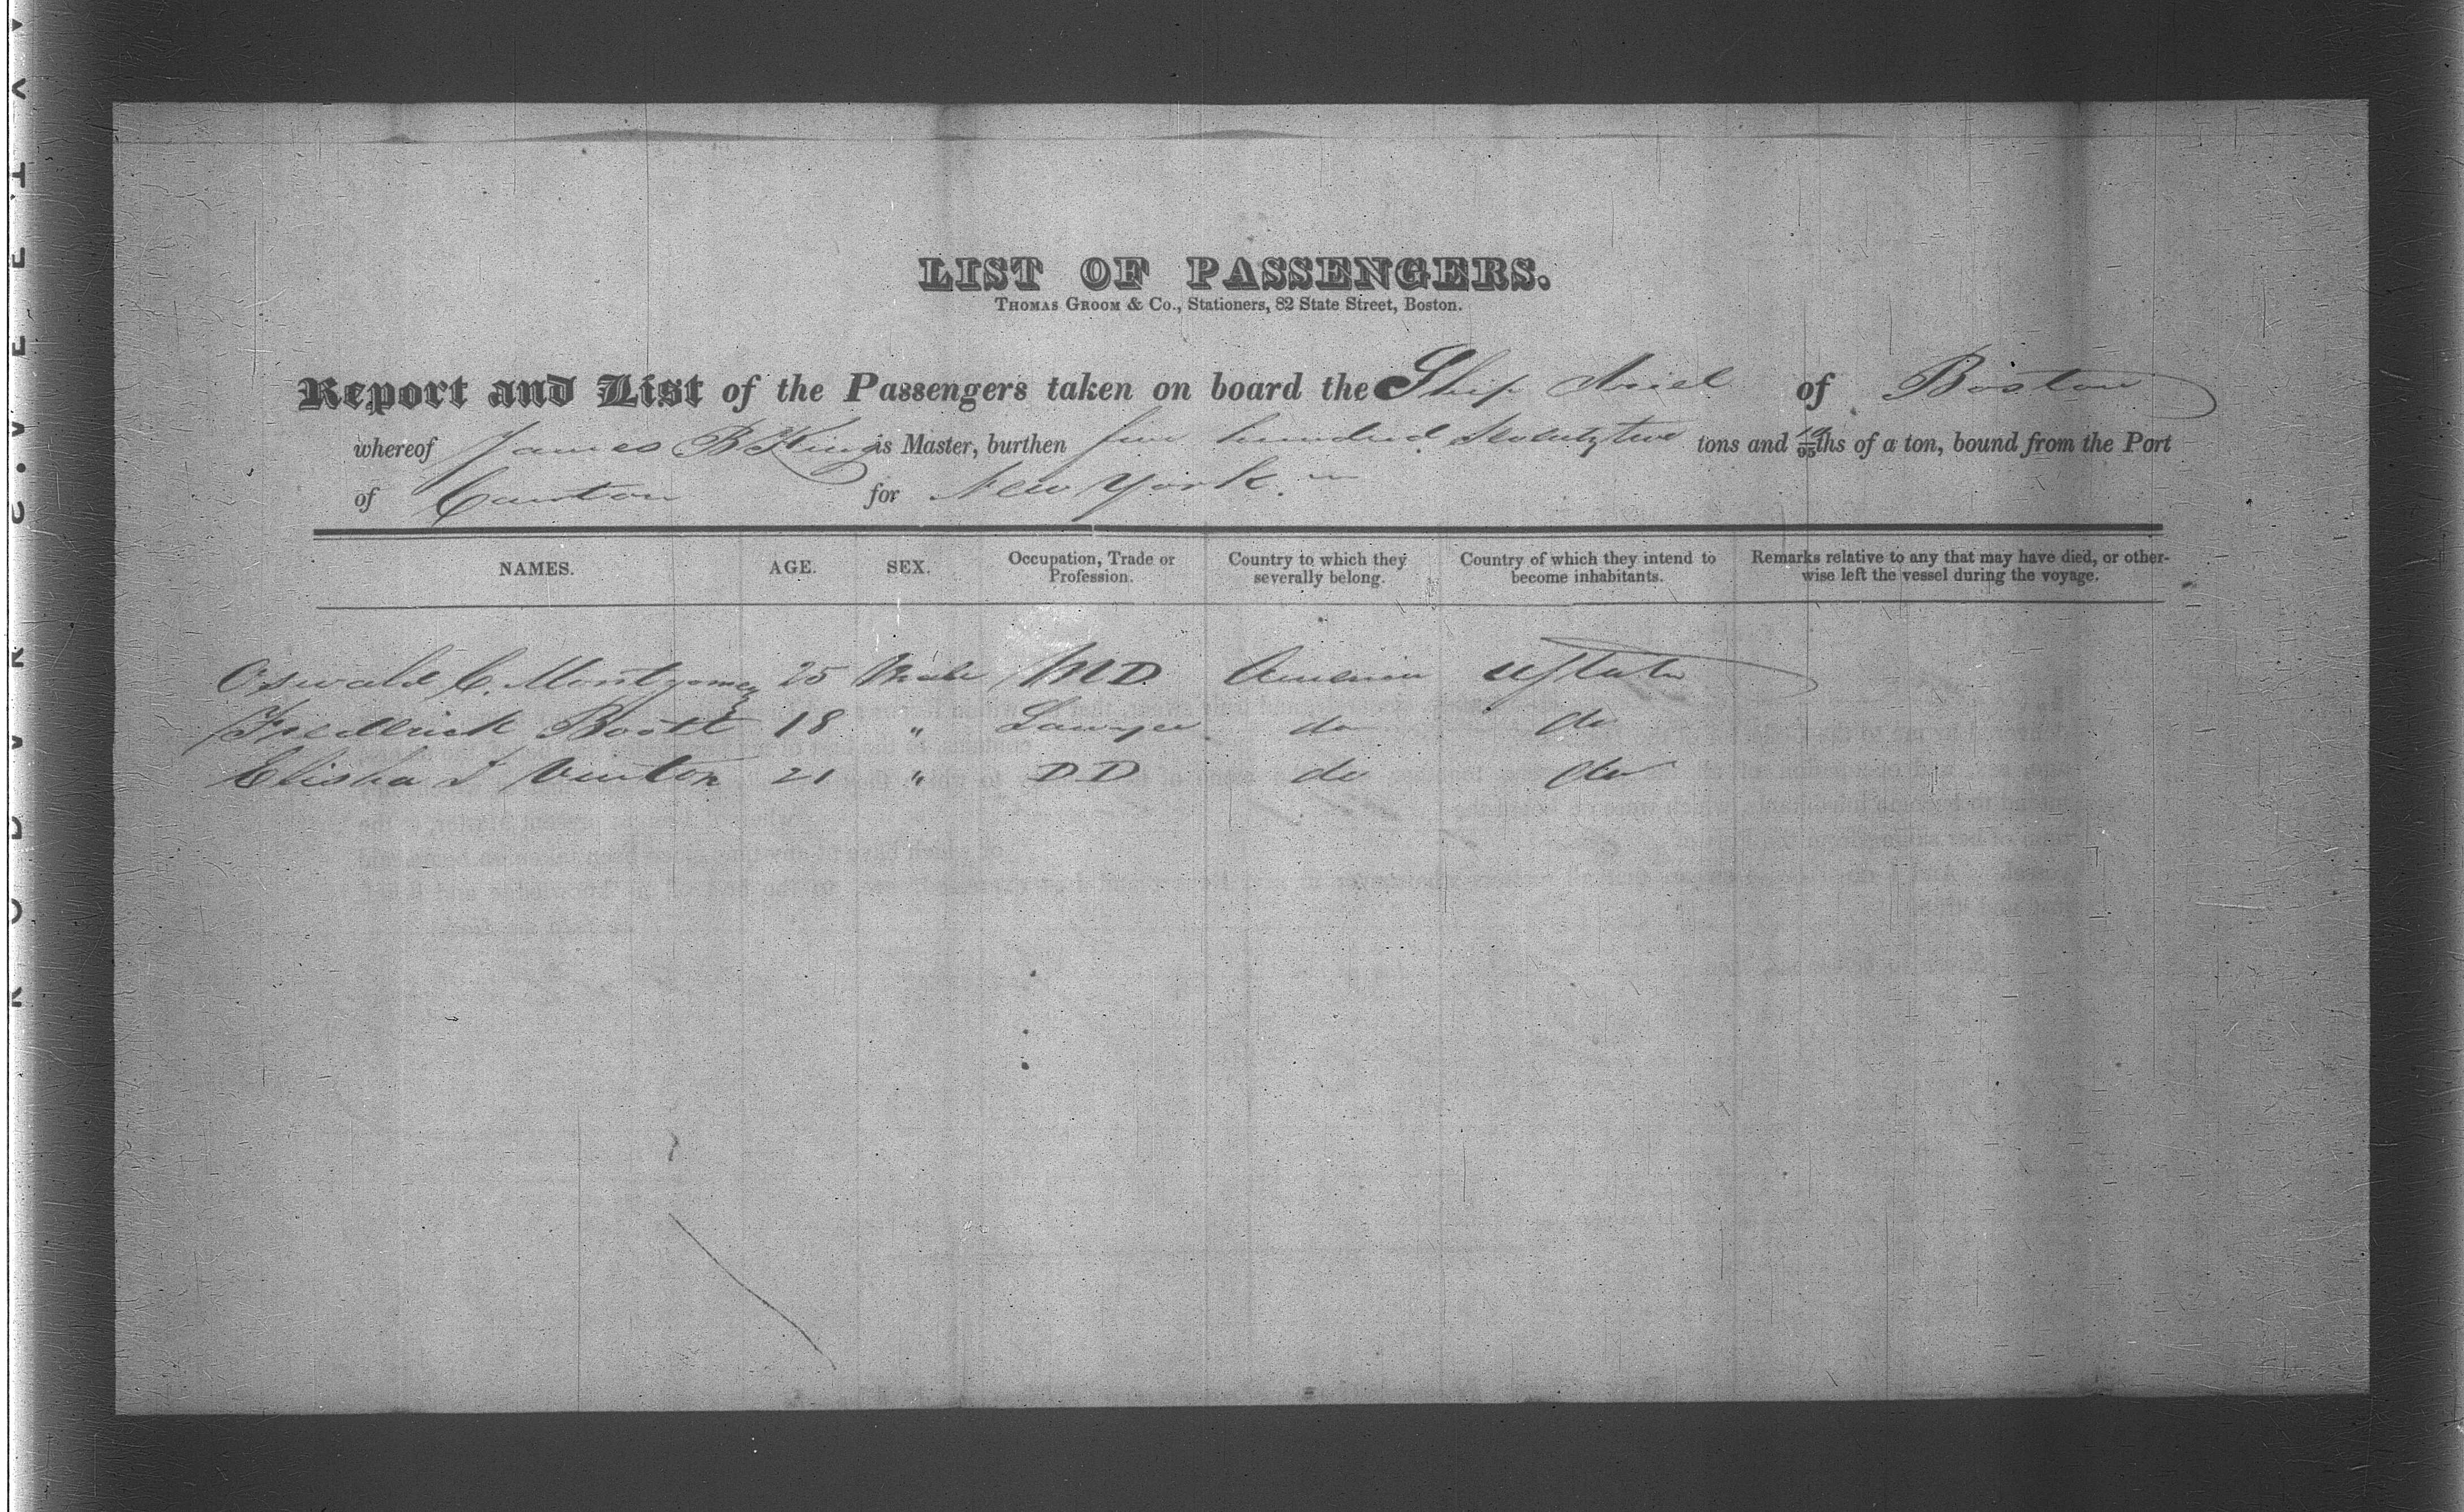 LIST OF PASSENGERS.
THOMAS GROOM & Co., Stationers, 82 State Street, Boston.
Report and List of the Passengers taken on board the Ship Ariel of Boston
whereof James B King is Master, burthen five hundred Seventy two tons and 10/95ths of a ton, bound from the Port
of Canton for New York.
NAMES. AGE. SEX. Occupation, Trade or Profession. Country to which they severally belong. Country of which they intend to become inhabitants. Remarks relative to any that may have died, or otherwise left the vessel during the voyage.
Oswald C. Montgomery 25 Male MD America UStates
Frederick Boott 18 " Lawyer do do
Elisha I Vinton 21 " DD do do